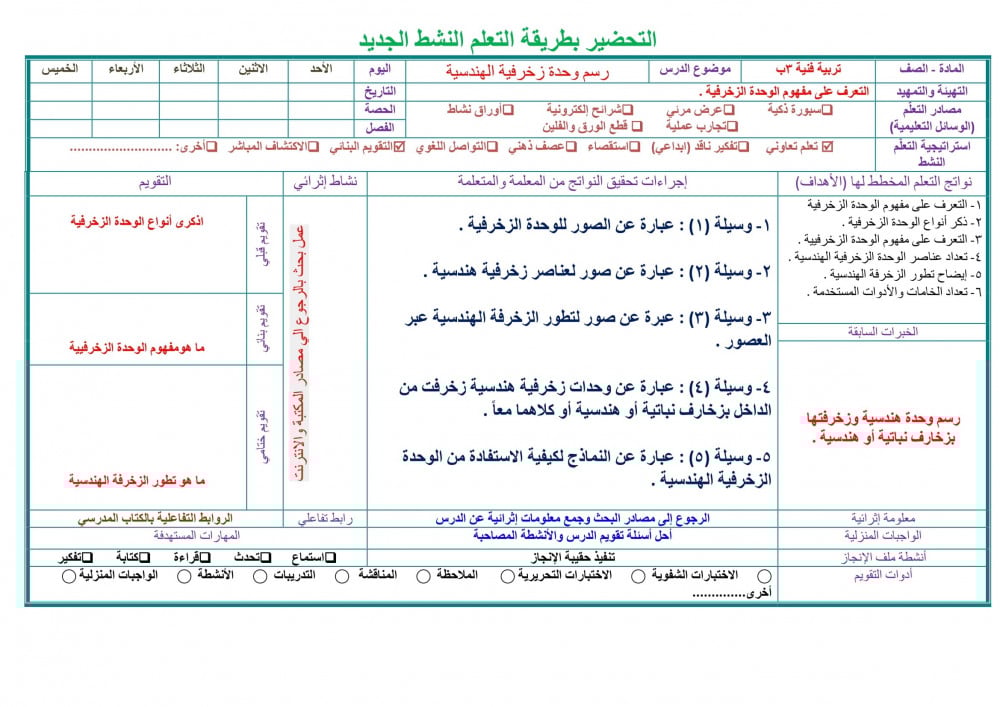 التحضير بطريقة التعلم النشط الجديد
المادة - الصف تربية فنية ٣ب موضوع الدرس رسم وحدة زخرفية الهندسية اليوم الأحد الاثنين الثلاثاء الأربعاء الخميس
التهيئة والتمهيد التعرف على مفهوم الوحدة الزخرفية . التاريخ
مصادر التعلم ❑سبورة ذكية ❑عرض مرئي ❑شرائح إلكترونية ❑أوراق نشاط الحصة
(الوسائل التعليمية) ❑تجارب عملية ❑ قطع الورق والفلين الفصل
استراتيجية التعلم ☑ تعلم تعاوني ❑تفكير ناقد (ابداعي) ❑استقصاء ❑عصف ذهني ❑التواصل اللغوي ☑التقويم البنائي ❑الاكتشاف المباشر ❑أخرى: ..........................
النشط
نواتج التعلم المخطط لها (الأهداف) إجراءات تحقيق النواتج من المعلمة والمتعلمة نشاط إثرائي التقويم
١- التعرف على مفهوم الوحدة الزخرفية
٢- ذكر أنواع الوحدة الزخرفية .
٣- التعرف على مفهوم الوحدة الزخرفيية .
٤- تعداد عناصر الوحدة الزخرفية الهندسية .
٥- إيضاح تطور الزخرفة الهندسية .
٦- تعداد الخامات والأدوات المستخدمة .
الخبرات السابقة
رسم وحدة هندسية وزخرفتها
بزخارف نباتية أو هندسية .
١- وسيلة (١) : عبارة عن الصور للوحدة الزخرفية .
٢- وسيلة (٢) : عبارة عن صور لعناصر زخرفية هندسية .
٣- وسيلة (٣) : عبرة عن صور لتطور الزخرفة الهندسية عبر
العصور .
٤- وسيلة (٤) : عبارة عن وحدات زخرفية هندسية زخرفت من
الداخل بزخارف نباتية أو هندسية أو كلاهما معاً .
٥- وسيلة (٥) : عبارة عن النماذج لكيفية الاستفادة من الوحدة
الزخرفية الهندسية .
عمل بحث بالرجوع الي مصادر المكتبة والانترنت
تقويم قبلي
اذكرى أنواع الوحدة الزخرفية
تقويم بنائي
ما هومفهوم الوحدة الزخرفيية
تقويم ختامي
ما هو تطور الزخرفة الهندسية
معلومة إثرائية الرجوع إلى مصادر البحث وجمع معلومات إثرائية عن الدرس رابط تفاعلي الروابط التفاعلية بالكتاب المدرسي
الواجبات المنزلية أحل أسئلة تقويم الدرس والأنشطة المصاحبة المهارات المستهدفة
أنشطة ملف الإنجاز تنفيذ حقيبة الإنجاز ❑استماع ❑تحدث ❑قراءة ❑كتابة ❑تفكير
أدوات التقويم ◯ الاختبارات الشفوية ◯ الاختبارات التحريرية ◯ الملاحظة ◯ المناقشة ◯ التدريبات ◯ الأنشطة ◯ الواجبات المنزلية ◯
أخرى..............